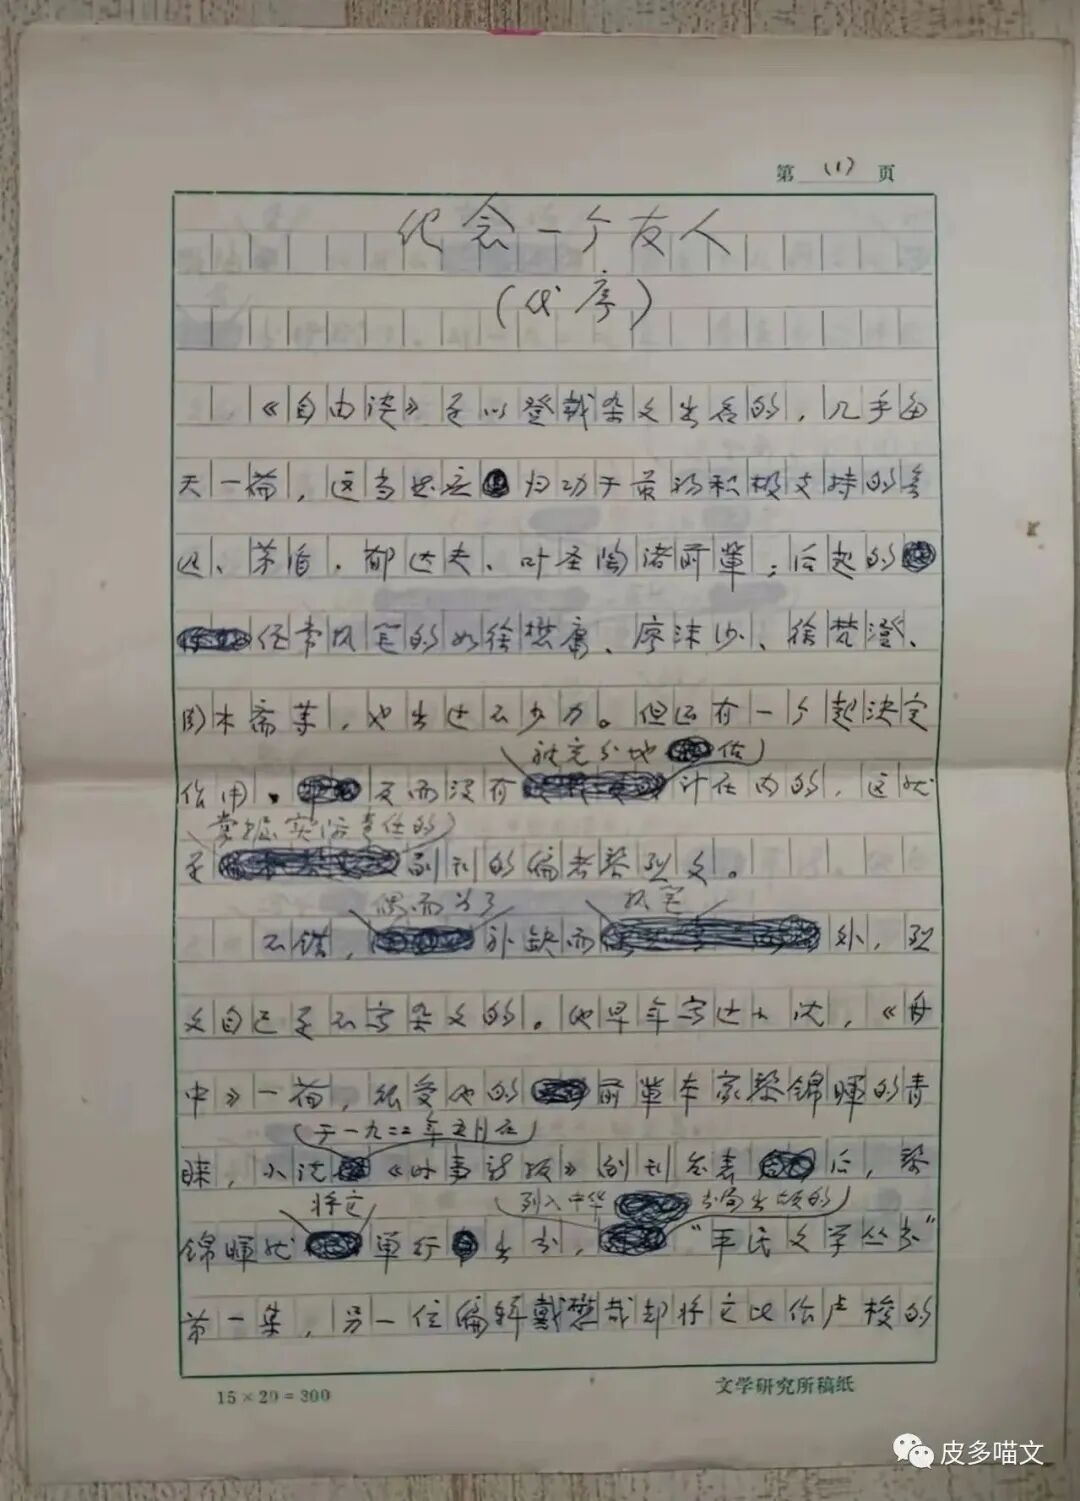 第 (1) 页
纪念一个友人
(代序)
《自由谈》是以登载杂文出名的，几乎每
天一篇，这当然应归功于最初积极支持的鲁
迅、茅盾、郁达夫、叶圣陶诸前輩；后起的
经常执笔的如徐懋庸、廖沫沙、徐梵澄、
周木斋等，也出过不少力。但还有一个起决定
被充分地估
作用、反而没有计在内的，这就
掌握实际责任的
是副刊的编者黎烈文。
偶而为了 执笔
不错，补缺而外，烈
文自己是不写杂文的。他早年写过小说，《舟
中》一篇，很受他的前輩本家黎錦暉的青
于一九二二年五月在
睐，小说《时事新报》副刊发表后，黎
将它 列入中华书局出版的
錦暉就單行出书，“平民文学丛书”
第一集，另一位编辑戴懋哉却将它比作卢梭的
15×20=300
文学研究所稿纸
皮多喵文